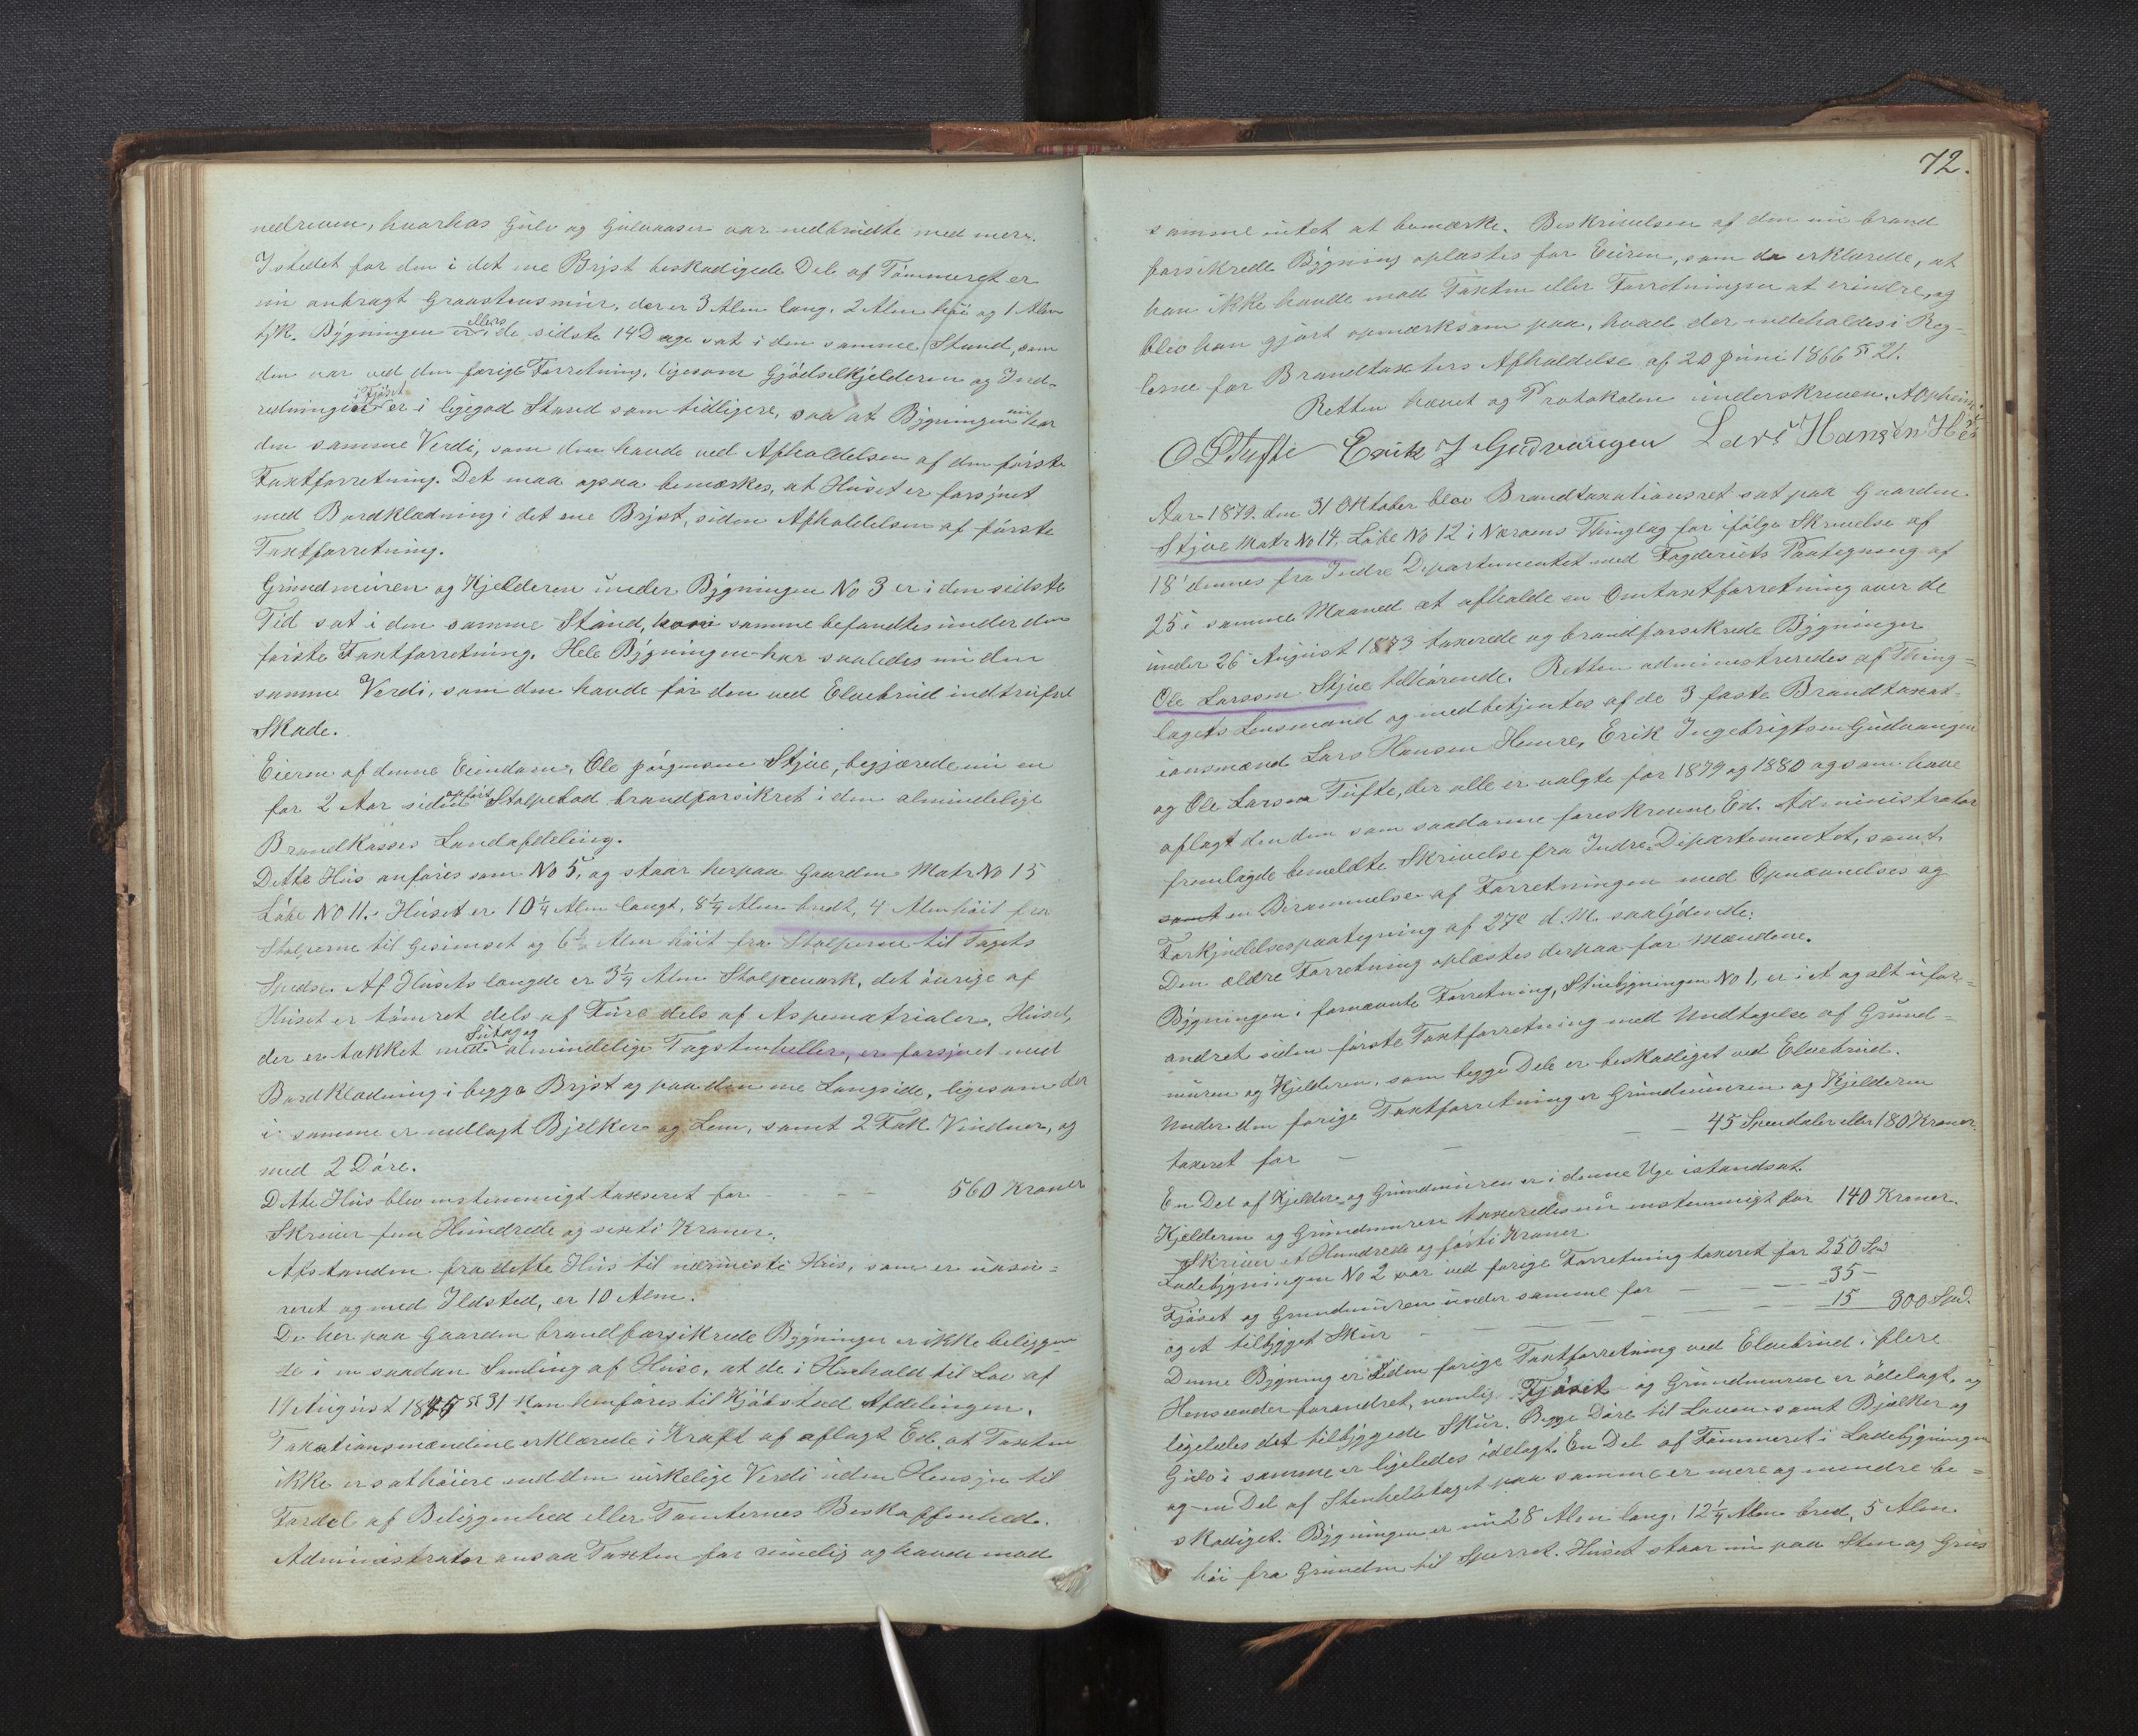 nedreven, hvorhos Gulv og Gulvaaser var nedbrudte med mere.
Istedet for den i det ene Bryst beskadigede Del af Tömmeret er
nu anbragt Graastensmur, der er 3 Alen lang, 2 Alen höi og 1 Alen
tyk. Bygningen er ellers de sidste 14 Dage sat i den samme Stand, som
den var ved den forige Forretning, ligesom Gjödselkjelderen og Ind-
redningen i Fjöset er i ligegod Stand som tidligere, saa at Bygningen nu har
den samme Verdi, som den havde ved Afholdelsen af den förste
Taxtforretning. Det maa ogsaa bemærkes, at Huset er forsynet
med Bordklædning i det ene Bryst, siden Afholdelsen af förste
Taxtforretning.
Grundmuren og Kjelderen under Bygningen No 3 er i den sidste
Tid sat i den samme Stand, hvori samme befandtes under den
förste Taxtforretning. Hele Bygningen har saaledes nu den
samme Verdi, som den havde för den ved Elvebrud indtrufne
Skade.
Eieren af denne Eiendom, Ole Jörgensen Stjve, begjærede nu en
for 2 Aar siden opfört Stolpelad brandforsikret i den almindelige
Brandkasses Landafdeling.
Dette Hus anföres som No 5, og staar herpaa Gaarden Matr No 15
Löbe No 11. Huset er 10 1/4 Alen langt, 8 1/4 Alen bredt, 4 Alen höit fra
Stolperne til Gesimset og 6 1/2 Alen höit fra Stolperne til Tagets
Spidse. Af Husets længde er 3 1/4 Alen Stolpeværk, det övrige af
Huset er tömret dels af Furu dels af Aspematrialer. Huset,
der er tækket med Sutag og almindelige Tagstenheller, er forsynet med
Bordklædning i begge Bryst og paa den ene Langside, ligesom der
i samme er nedlagt Bjelker og Lem, samt 2 Fak Vinduer, og
med 2 Döre.
Dette Hus blev enstemmigt taxeret for - - - 560 Kroner
Skriver fem Hundrede og sexti Kroner.
Afstanden fra dette Hus til nærmeste Hus, som er uasu-
reret og med Ildsted, er 10 Alen.
De her paa Gaarden brandforsikrede Bygninger er ikke beliggen-
de i en saadan Samling af Huse, at de i Henhold til Lov af
19 August 1845 § 31 kan henföres til Kjöbstad Afdelingen.
Taxationsmændene erklærede i Kraft af aflagt Ed, at Taxten
ikke er sat höiere end den virkelige Verdi uden Hensyn til
Fordel af Beliggenhed eller Tomternes Beskaffenhed.
Administrator ansaa Taxten for rimelig og havde mod
72.
samme intet at bemærke. Beskrivelsen af den nu brand
forsikrede Bygning oplæstes for Eieren, som da erklærede, at
han ikke havde mod Taxten eller Forretningen at erindre, og
blev han gjort opmærksom paa, hvad der indeholdes i Reg-
lerne for Brandtaxters Afholdelse af 20 Juni 1866 § 21.
Retten hævet og Protokolen underskreven. A Opheim.
O L Tufte Erik I Gudvangen Lars Hansen H
Aar 1879. den 31 Oktober blev Brandtaxationsret sat paa Gaarden
Stjve Matr No 14, Löbe No 12 i Nærøens Thinglag for ifölge Skrivelse af
18' dennes fra Indre Departementet med Fogderiets Paategning af
25i samme Maaned at afholde en Omtaxtforretning over de
under 26 August 1873 taxerede og brandforsikrede Bygninger
Ole Larssen Stjve tilhörende. Retten administreredes af Thing-
lagets Lensmand og medbetjentes af de 3 faste Brandtaxat-
ionsmænd Lars Hansen Hemre, Erik Ingebrigtsen Gudvangen
og Ole Larsen Tufte, der alle er valgte for 1879 og 1880 og som have
aflagt den dem som saadanne foreskrevne Ed. Administrator
fremlagde bemeldte Skrivelse fra Indre Departementet, samt
samt en Berammelse af Forretningen med Opnævnelses og
Forkyndelsespaategning af 27e d. M. saalydende:
Den ældre Forretning oplæstes derpaa for Mændene.
Bygningen i fornævnte Forretning, Stuebygningen No 1, er i et og alt ufor-
andret siden förste Taxtforretning med Undtagelse af Grund-
muren og Kjelderen, som begge Dele er beskadiget ved Elvebrud.
Under den forige Taxtforretning er Grundmuren og Kjelderen
taxeret for - - - - 45 Speciedaler eller 180 Kroner.
En Del af Kjelder og Grundmuren er i denne Uge istandsat.
Kjelderen og Grundmuren taxeredes nu enstemmigt for 140 Kroner.
Skriver et Hundrede og förti Kroner
Ladebygningen No 2 var ved forige Forretning taxeret for 250 Spd
Fjöset og Grundmuren under samme for - - 35 -
og et tilbygget Skur - - - 15 300 Spd.
Denne Bygning er siden forige Taxtforretning ved Elvebrud i flere
Henseender forandret, nemlig Fjöset og Grundmuren er ödelagt, og
ligeledes det tilbyggede Skur. Begge Döre til Laven samt Bjælker og
Gulv i samme er ligeledes ödelagt. En Del af Tömmeret i Ladebygningen
og en Del af Stenhelletaget paa samme er mere og mindre be-
skadiget. Bygningen er nu 28 Alen lang, 12 1/4 Alen bred, 5 Alen
höi fra Grunden til Sperret. Huset staar nu paa Sten og Grus